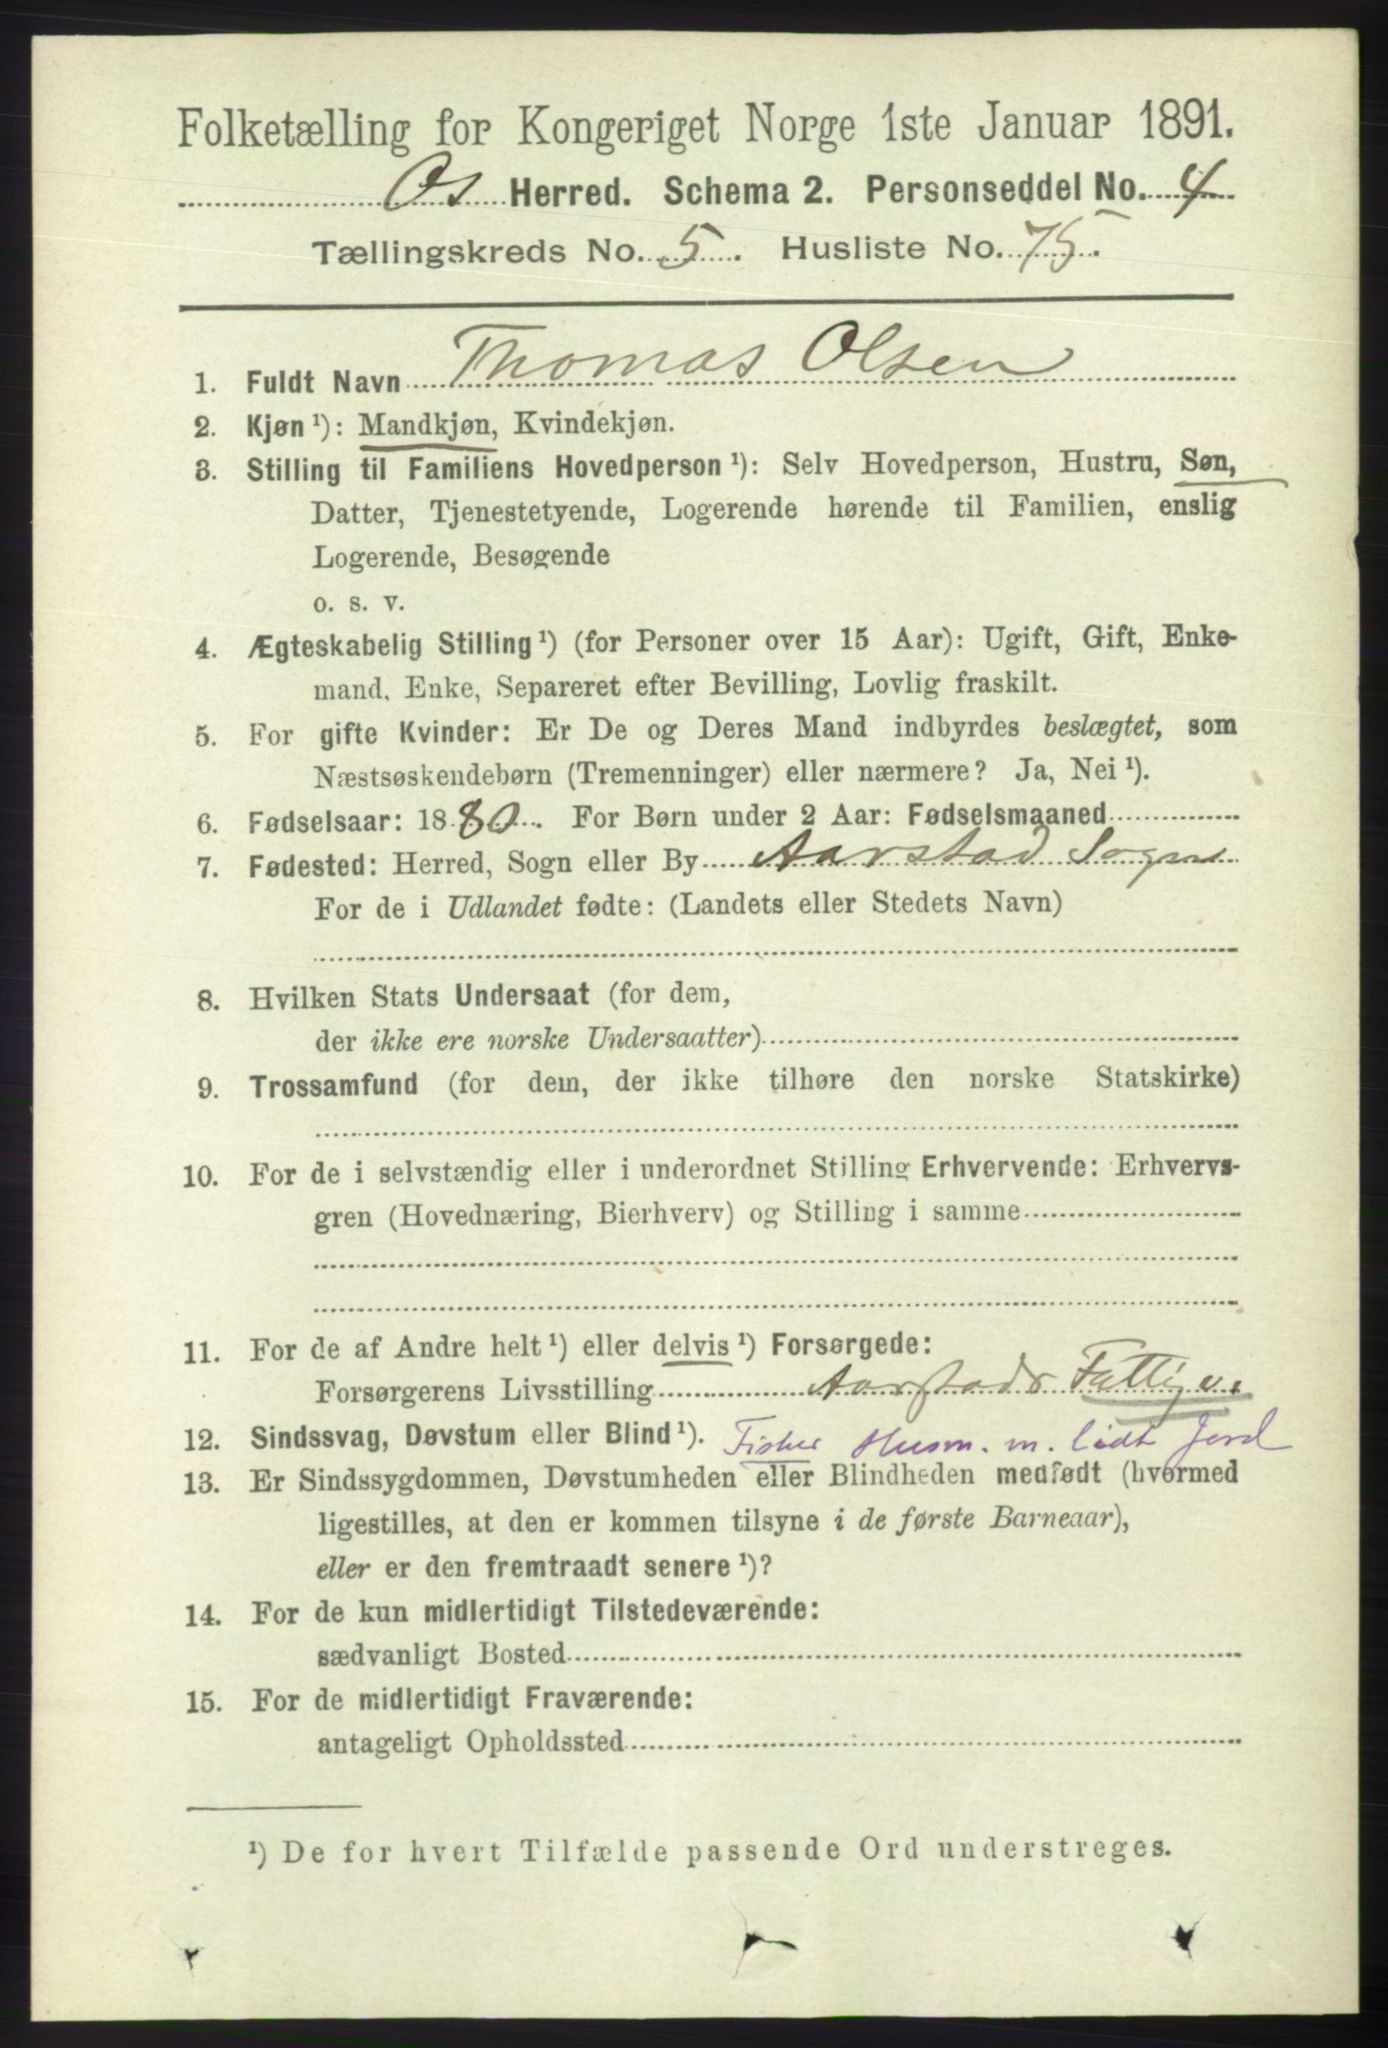 Folketælling for Kongeriget Norge 1ste Januar 1891.
Os Herred. Schema 2. Personseddel No. 4
Tællingskreds No. 5. Husliste No. 75.
1. Fuldt Navn Thomas Olsen
2. Kjøn ¹): Mandkjøn, Kvindekjøn.
3. Stilling til Familiens Hovedperson ¹): Selv Hovedperson, Hustru, Søn,
Datter, Tjenestetyende, Logerende hørende til Familien, enslig
Logerende, Besøgende
o. s. v.
4. Ægteskabelig Stilling ¹) (for Personer over 15 Aar): Ugift, Gift, Enke-
mand, Enke, Separeret efter Bevilling, Lovlig fraskilt.
5. For gifte Kvinder: Er De og Deres Mand indbyrdes beslægtet, som
Næstsøskendebørn (Tremenninger) eller nærmere? Ja, Nei ¹).
6. Fødselsaar: 1880. For Børn under 2 Aar: Fødselsmaaned
7. Fødested: Herred, Sogn eller By Aarstad Sogn
For de i Udlandet fødte: (Landets eller Stedets Navn)
8. Hvilken Stats Undersaat (for dem,
der ikke ere norske Undersaatter)
9. Trossamfund (for dem, der ikke tilhøre den norske Statskirke)
10. For de i selvstændig eller i underordnet Stilling Erhvervende: Erhvervs-
gren (Hovednæring, Bierhverv) og Stilling i samme
11. For de af Andre helt ¹) eller delvis ¹) Forsørgede:
Forsørgerens Livsstilling Aarstads Fattigv.
12. Sindssvag, Døvstum eller Blind ¹). Fisker Husm. m. lidt Jord
13. Er Sindssygdommen, Døvstumheden eller Blindheden medfødt (hvormed
ligestilles, at den er kommen tilsyne i de første Barneaar),
eller er den fremtraadt senere ¹)?
14. For de kun midlertidigt Tilstedeværende:
sædvanligt Bosted
15. For de midlertidigt Fraværende:
antageligt Opholdssted
¹) De for hvert Tilfælde passende Ord understreges.